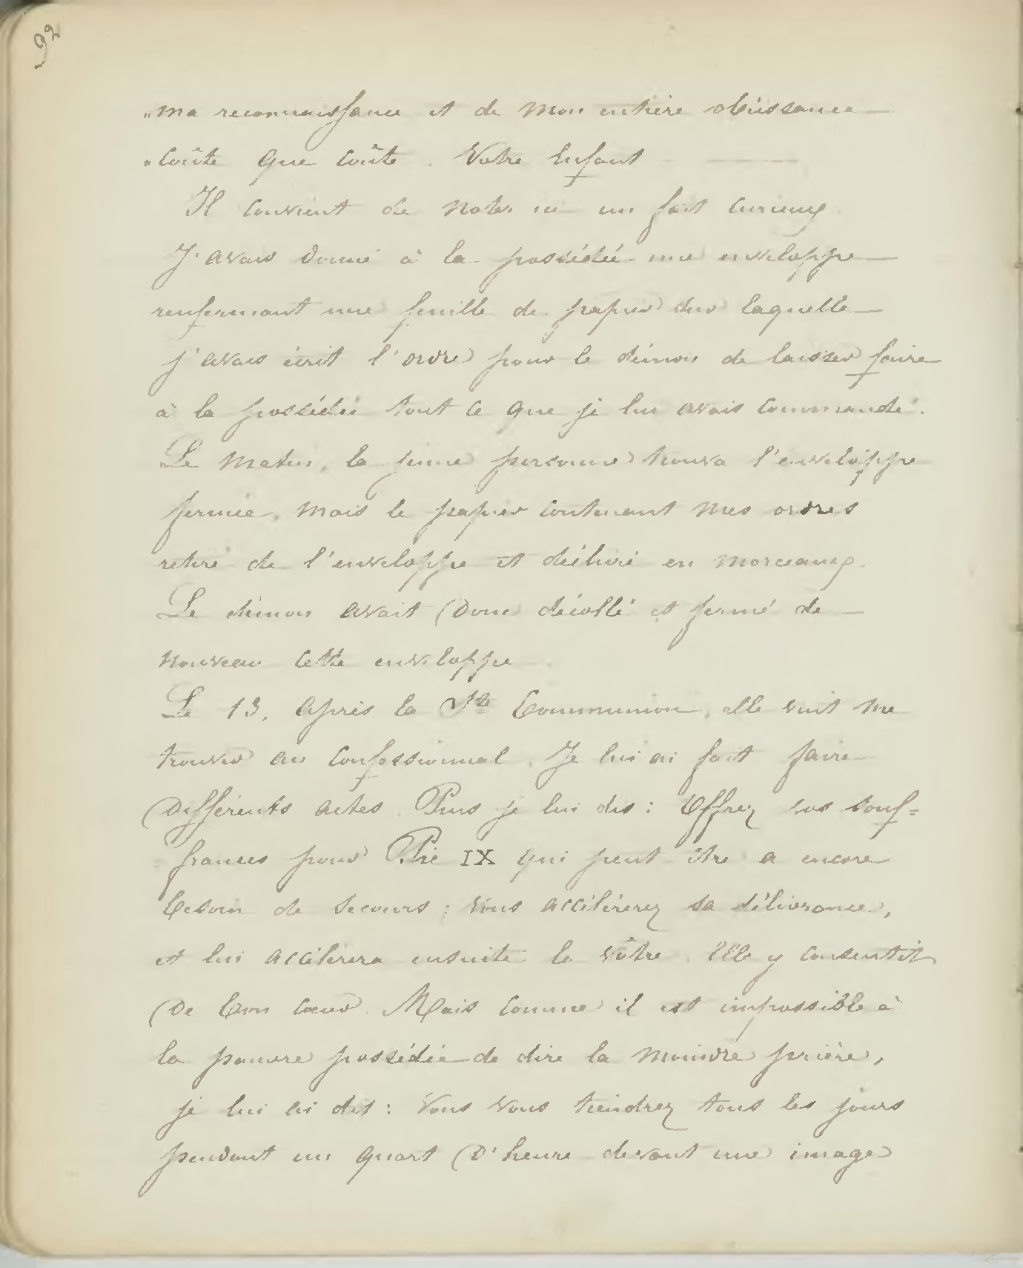 92
"ma reconnaissance et de mon entière obéissance
"coûte que coûte. Votre Enfant
Il convient de noter ici un fait curieux.
J'avais donné à la possédée une enveloppe
renfermant une feuille de papier sur laquelle
j'avais écrit l'ordre pour le démon de laisser faire
à la possédée tout ce que je lui avais commandé.
Le matin, la jeune personne trouva l'enveloppe
fermée, mais le papier contenant mes ordres
retiré de l'enveloppe et déchiré en morceaux.
Le démon avait donc décollé et fermé de
nouveau cette enveloppe.
Le 13, après la Ste Communion, elle vint me
trouver au confessionnal. Je lui ai fait faire
différents actes. Puis je lui dis: Offrez vos souf=
frances pour Pie IX qui peut être a encore
besoin de secours; vous accélérerez sa délivrance,
et lui accélérera ensuite la vôtre. Elle y consentit
de bon cœur. Mais comme il est impossible à
la pauvre possédée de dire la moindre prière,
je lui ai dit: Vous vous tiendrez tous les jours
pendant un quart d'heure devant une image